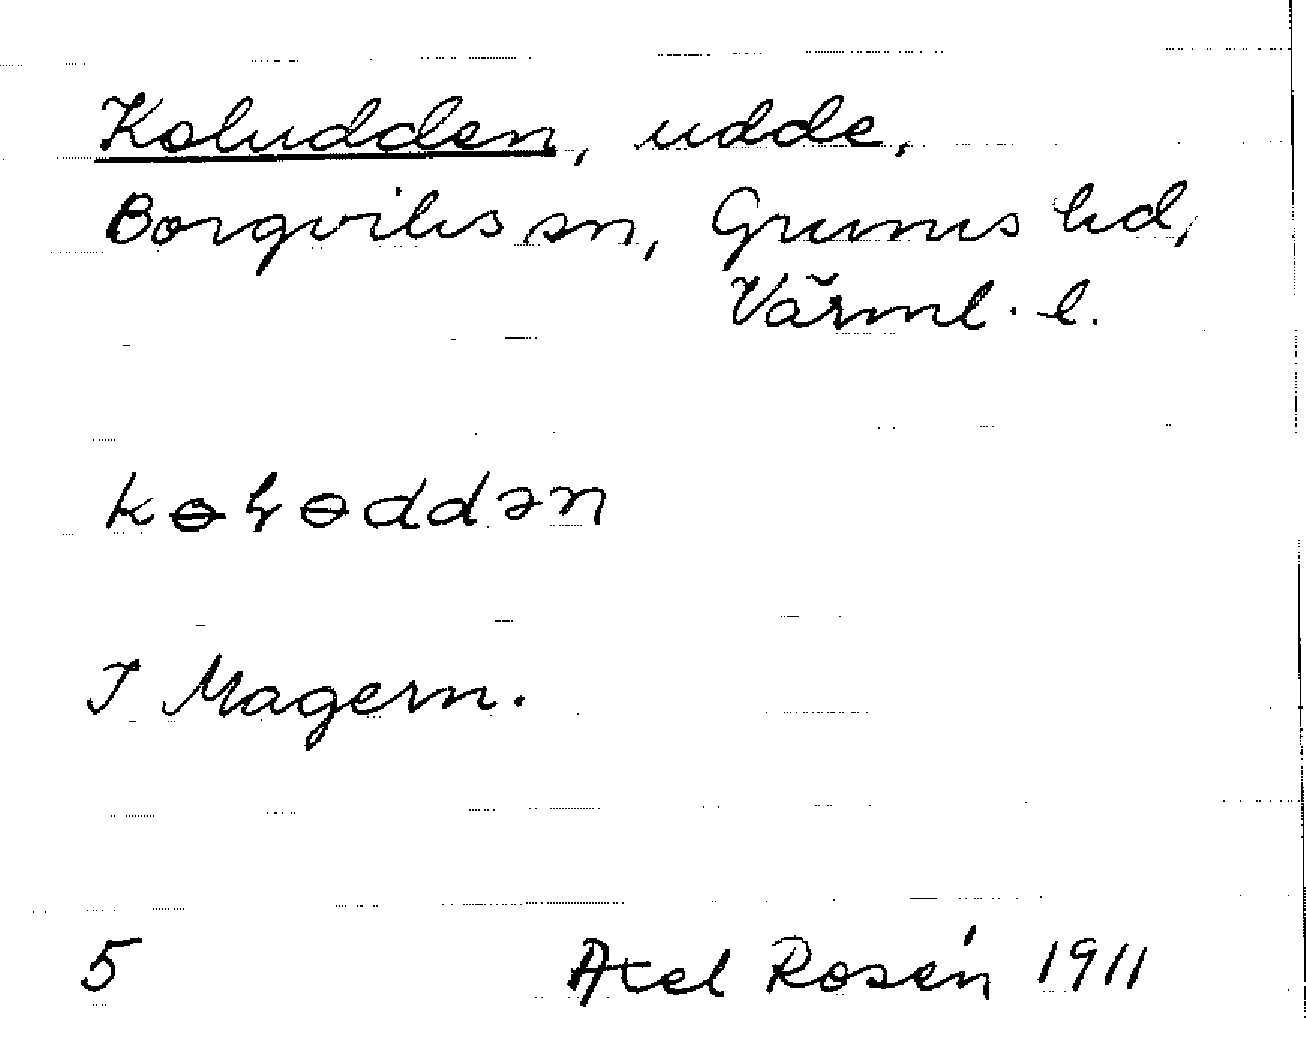 Koludden, udde,
Borgviks sn, Grums hd,
Värml. l.
kɵɽɵddən
I Magern.
5 Axel Rosén 1911